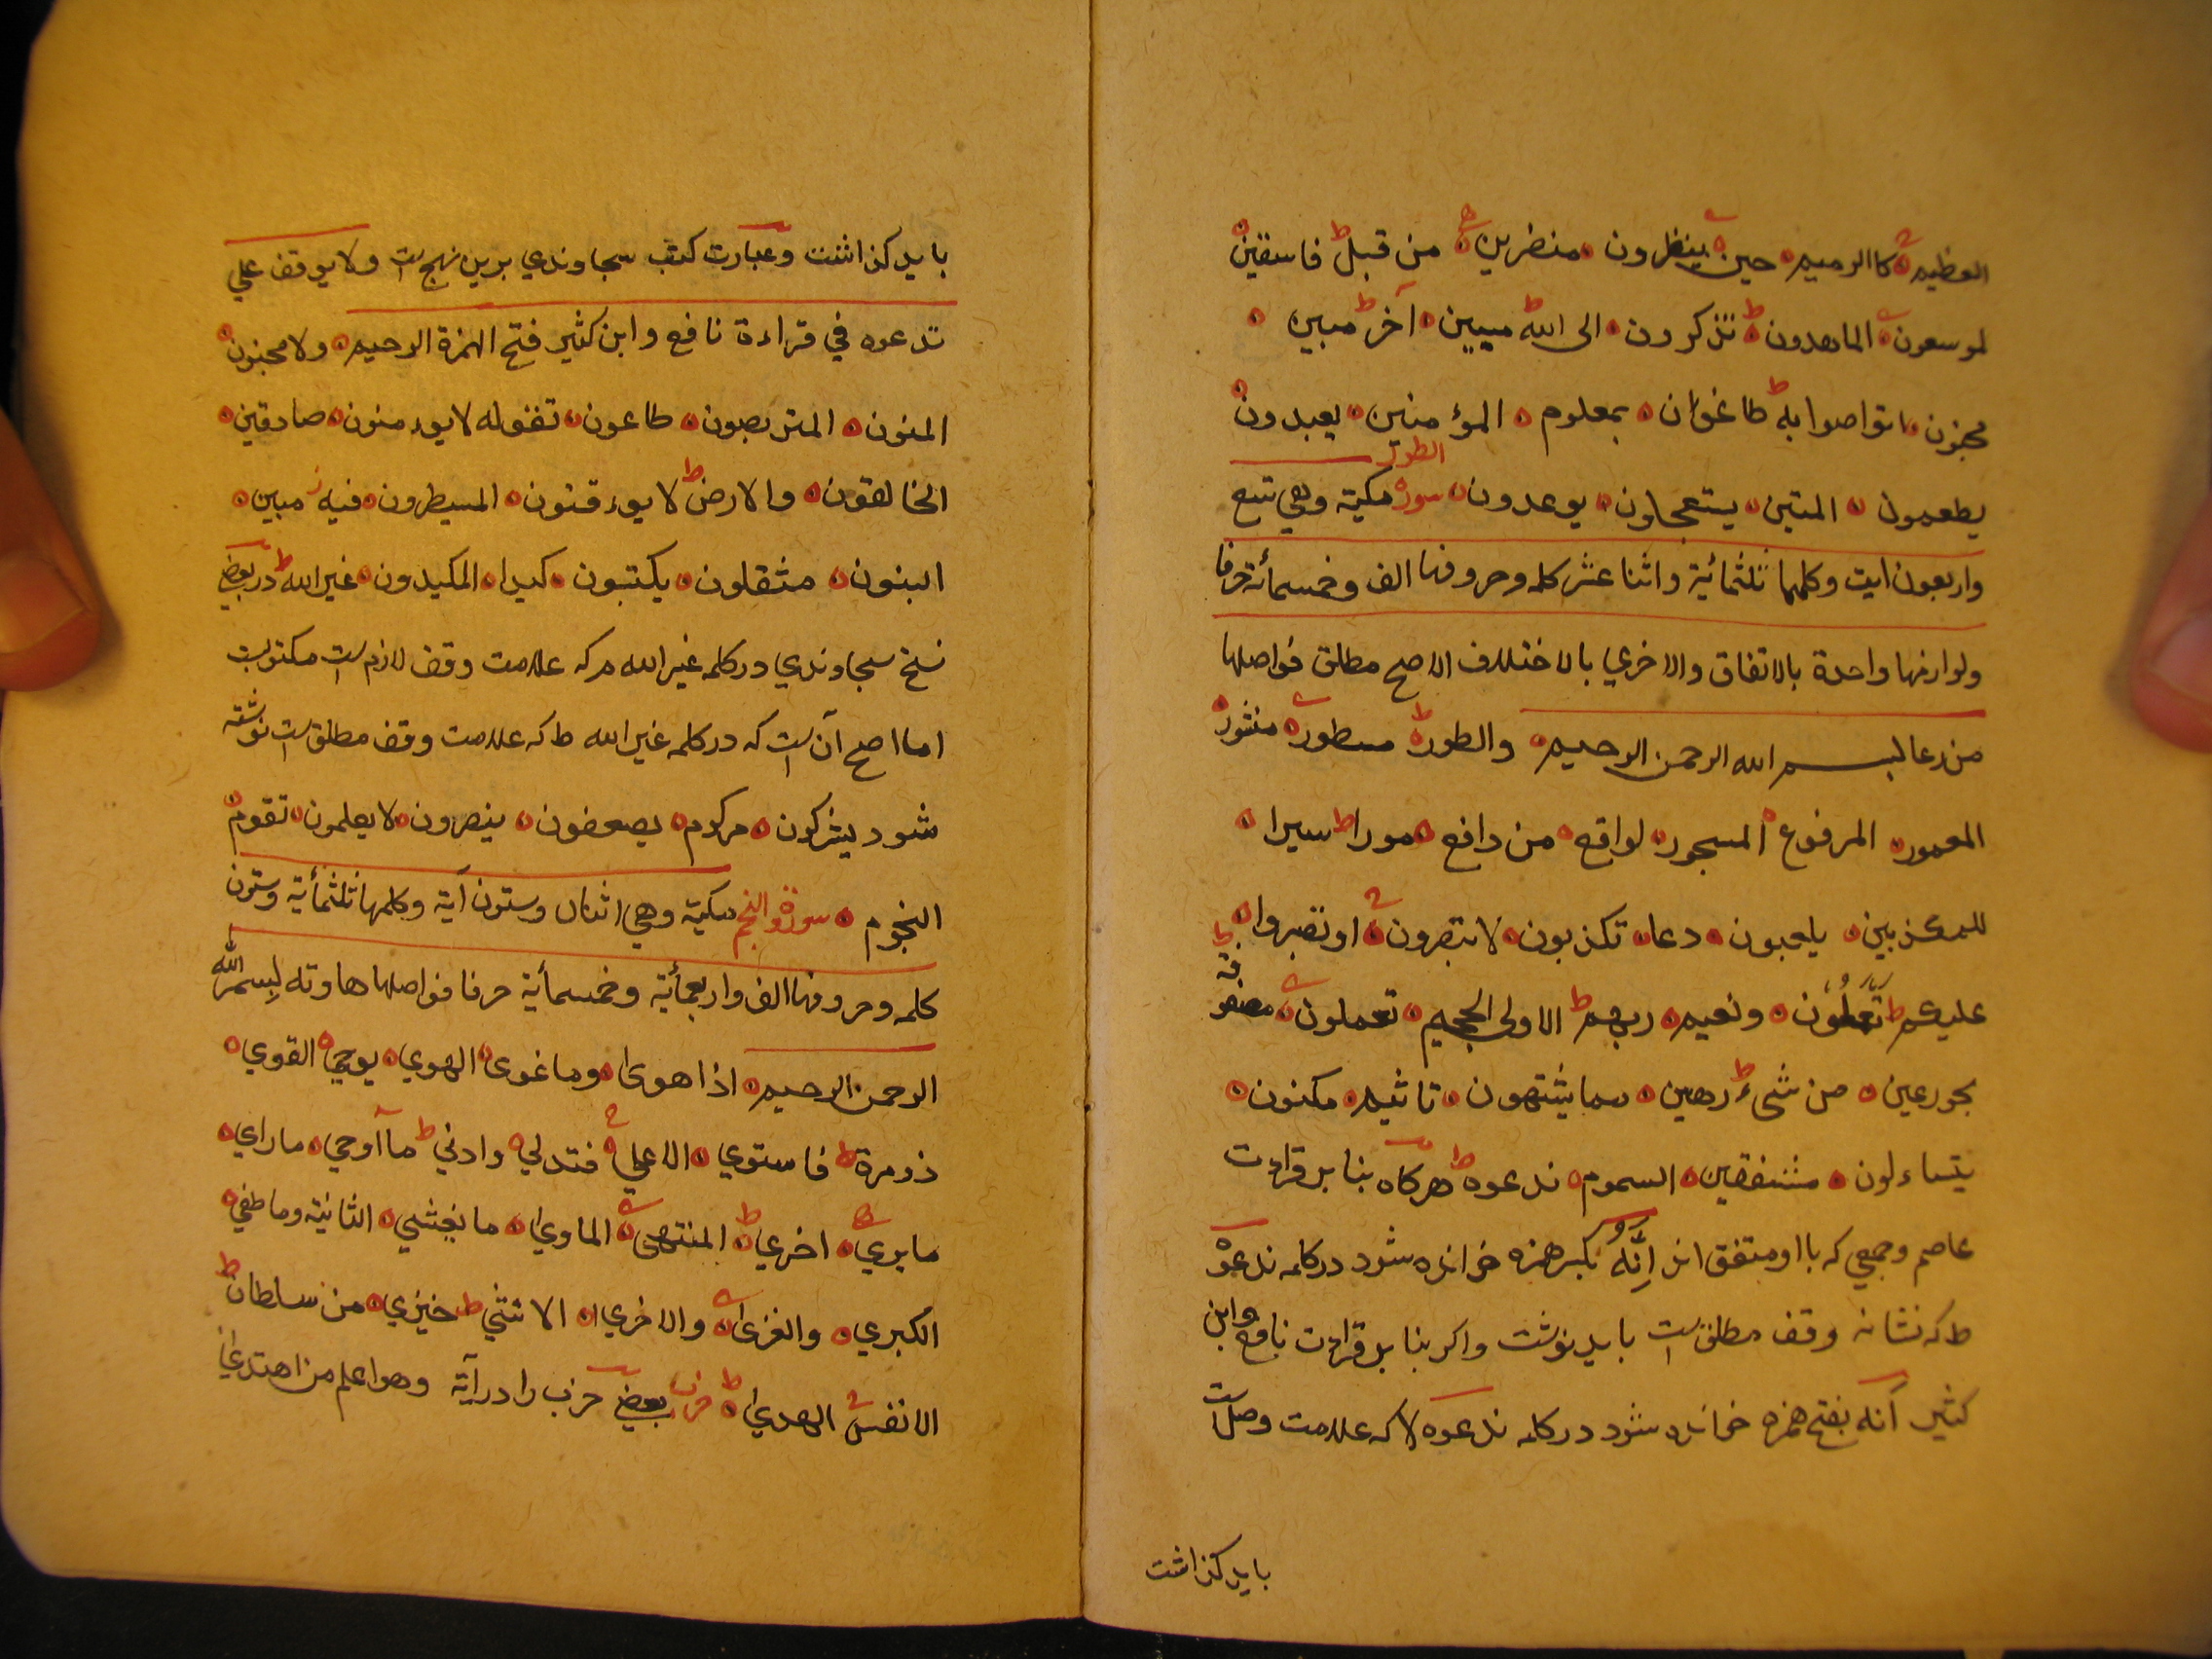 العظیم كالرميم حين ينظرون منضرين من قبل فاسقين
لموسعون الماهدون تذكرون الى الله مبين آخر مبين
مجنون اتواصوا به طاغوان بملوم المؤمنين يعبدون
يطعمون المتين يستعجلون يوعدون سورة الطور مكية وهي تسع
واربعون ايت وكلمها ثلثمائية واثنا عشر كلمه وحروفها الف وخمسمأئة حرفا
ولوازمها واحدة بالاتفاق والاخري بالاختلاف الاصح مطلق فواصلها
من رعا لبسم الله الرحمن الرحيم والطور مسطور منشور
المعمور المرفوع المسجور لواقع من دافع مورا سيرا
للمكذبين يلعبون دعا تكذبون لا تبصرون او تصبروا
عليكم تعملون ونعيم ربهم الاولى الجحيم تعملون مصفوفة
بحور عين من شىء رهين مما يشتهون تاثيم مكنون
يتساءلون مشفقين السموم ندعوه ط هرکاه بنا بر قراءت
عاصم وجمعي كه با او متفق اند اِنَّهُ بكسر همزه خوانده شود در كلمه ندعوه
ط كه نشانه وقف مطلق است بايد نوشت واكر بنا بر قراءت نافع وابن
كثير أنه بفتح همزه خوانده شود در كلمه ندعوه لا كه علامت وصل است
بايد كذاشت
بايد كذاشت وعبارت كتب سجاوندي برين نهج است ولا يوقف علي
تدعوه في قراءة نافع وابن كثير فتح الهمزة الرحيم ولا مجنون
المنون المتربصون طاعون تقوله لا يوءمنون صادقين
الخالقون والارض لا يوءقنون المسيطرون فيه مبين
البنون مثقلون يكتبون كيدا المكيدون غير الله در بعض
نسخ سجاوندي در كلمه غير الله م كه علامت وقف لازم است مكتوبست
اما اصح آن است كه در كلمه غير الله ط كه علامت وقف مطلق است نوشته
شود يشركون مركوم يصعقون ينصرون لا يعلمون تقوم
النجوم سورة والنجم مكية وهي اثنان وستون آية وكلمها ثلثمأية وستون
كلمه وحروفها الف واربعمأية وخمسمأية حرفا فواصلها هاوته لبسم الله
الرحمن الرحيم اذا هوى وما غوى الهوي يوحي القوي
ذو مرة فاستوي الاعلي فتدلي وادني ما آوحي ما راي
ما يري اخري المنتهى الماوي ما يغشي الثانية وما طغي
الكبري والعزى والاخري الانثي ضيزي من سلطان
الانفس الهدي حزب بعضي حزب را در آية وهو اعلم من اهتدي